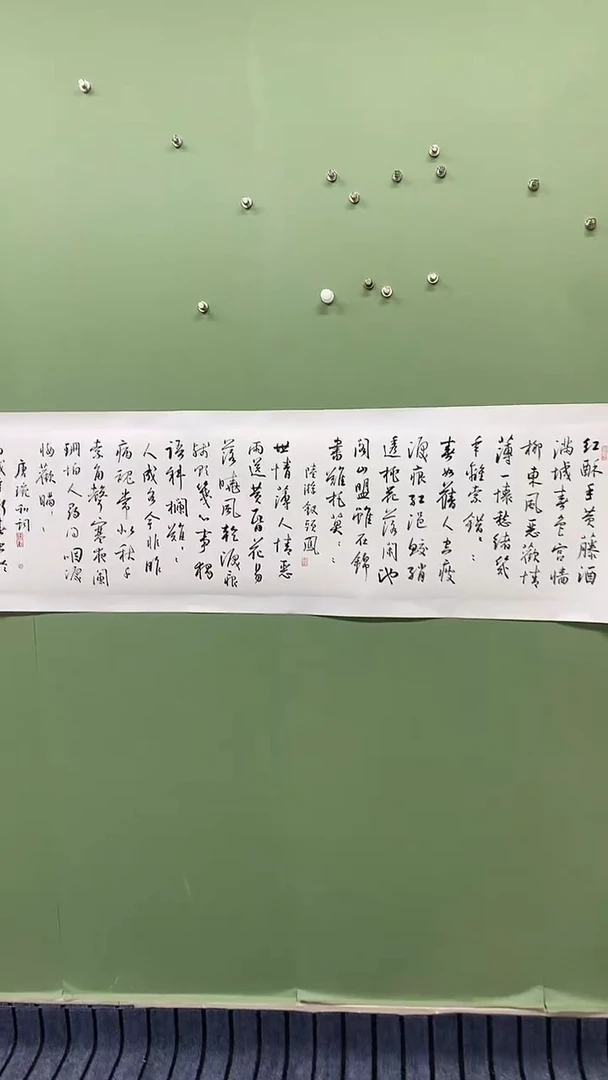 红酥手黄藤酒
滿城春色宫墙
柳東風恶歡情
薄一懷愁緒幾
年離索錯：：
春如舊人空瘦
淚痕红浥鲛绡
透桃花落閑池
閣山盟雖在錦
書難托莫：：
陸游釵頭鳳
世情薄人情恶
雨送黄昏花易
落曉風乾淚痕
殘欲箋心事獨
語斜欄難：：
人成各今非昨
病魂常似秋千
索角聲寒夜闌
珊怕人尋問咽淚
歡瞞：
唐琬和詞